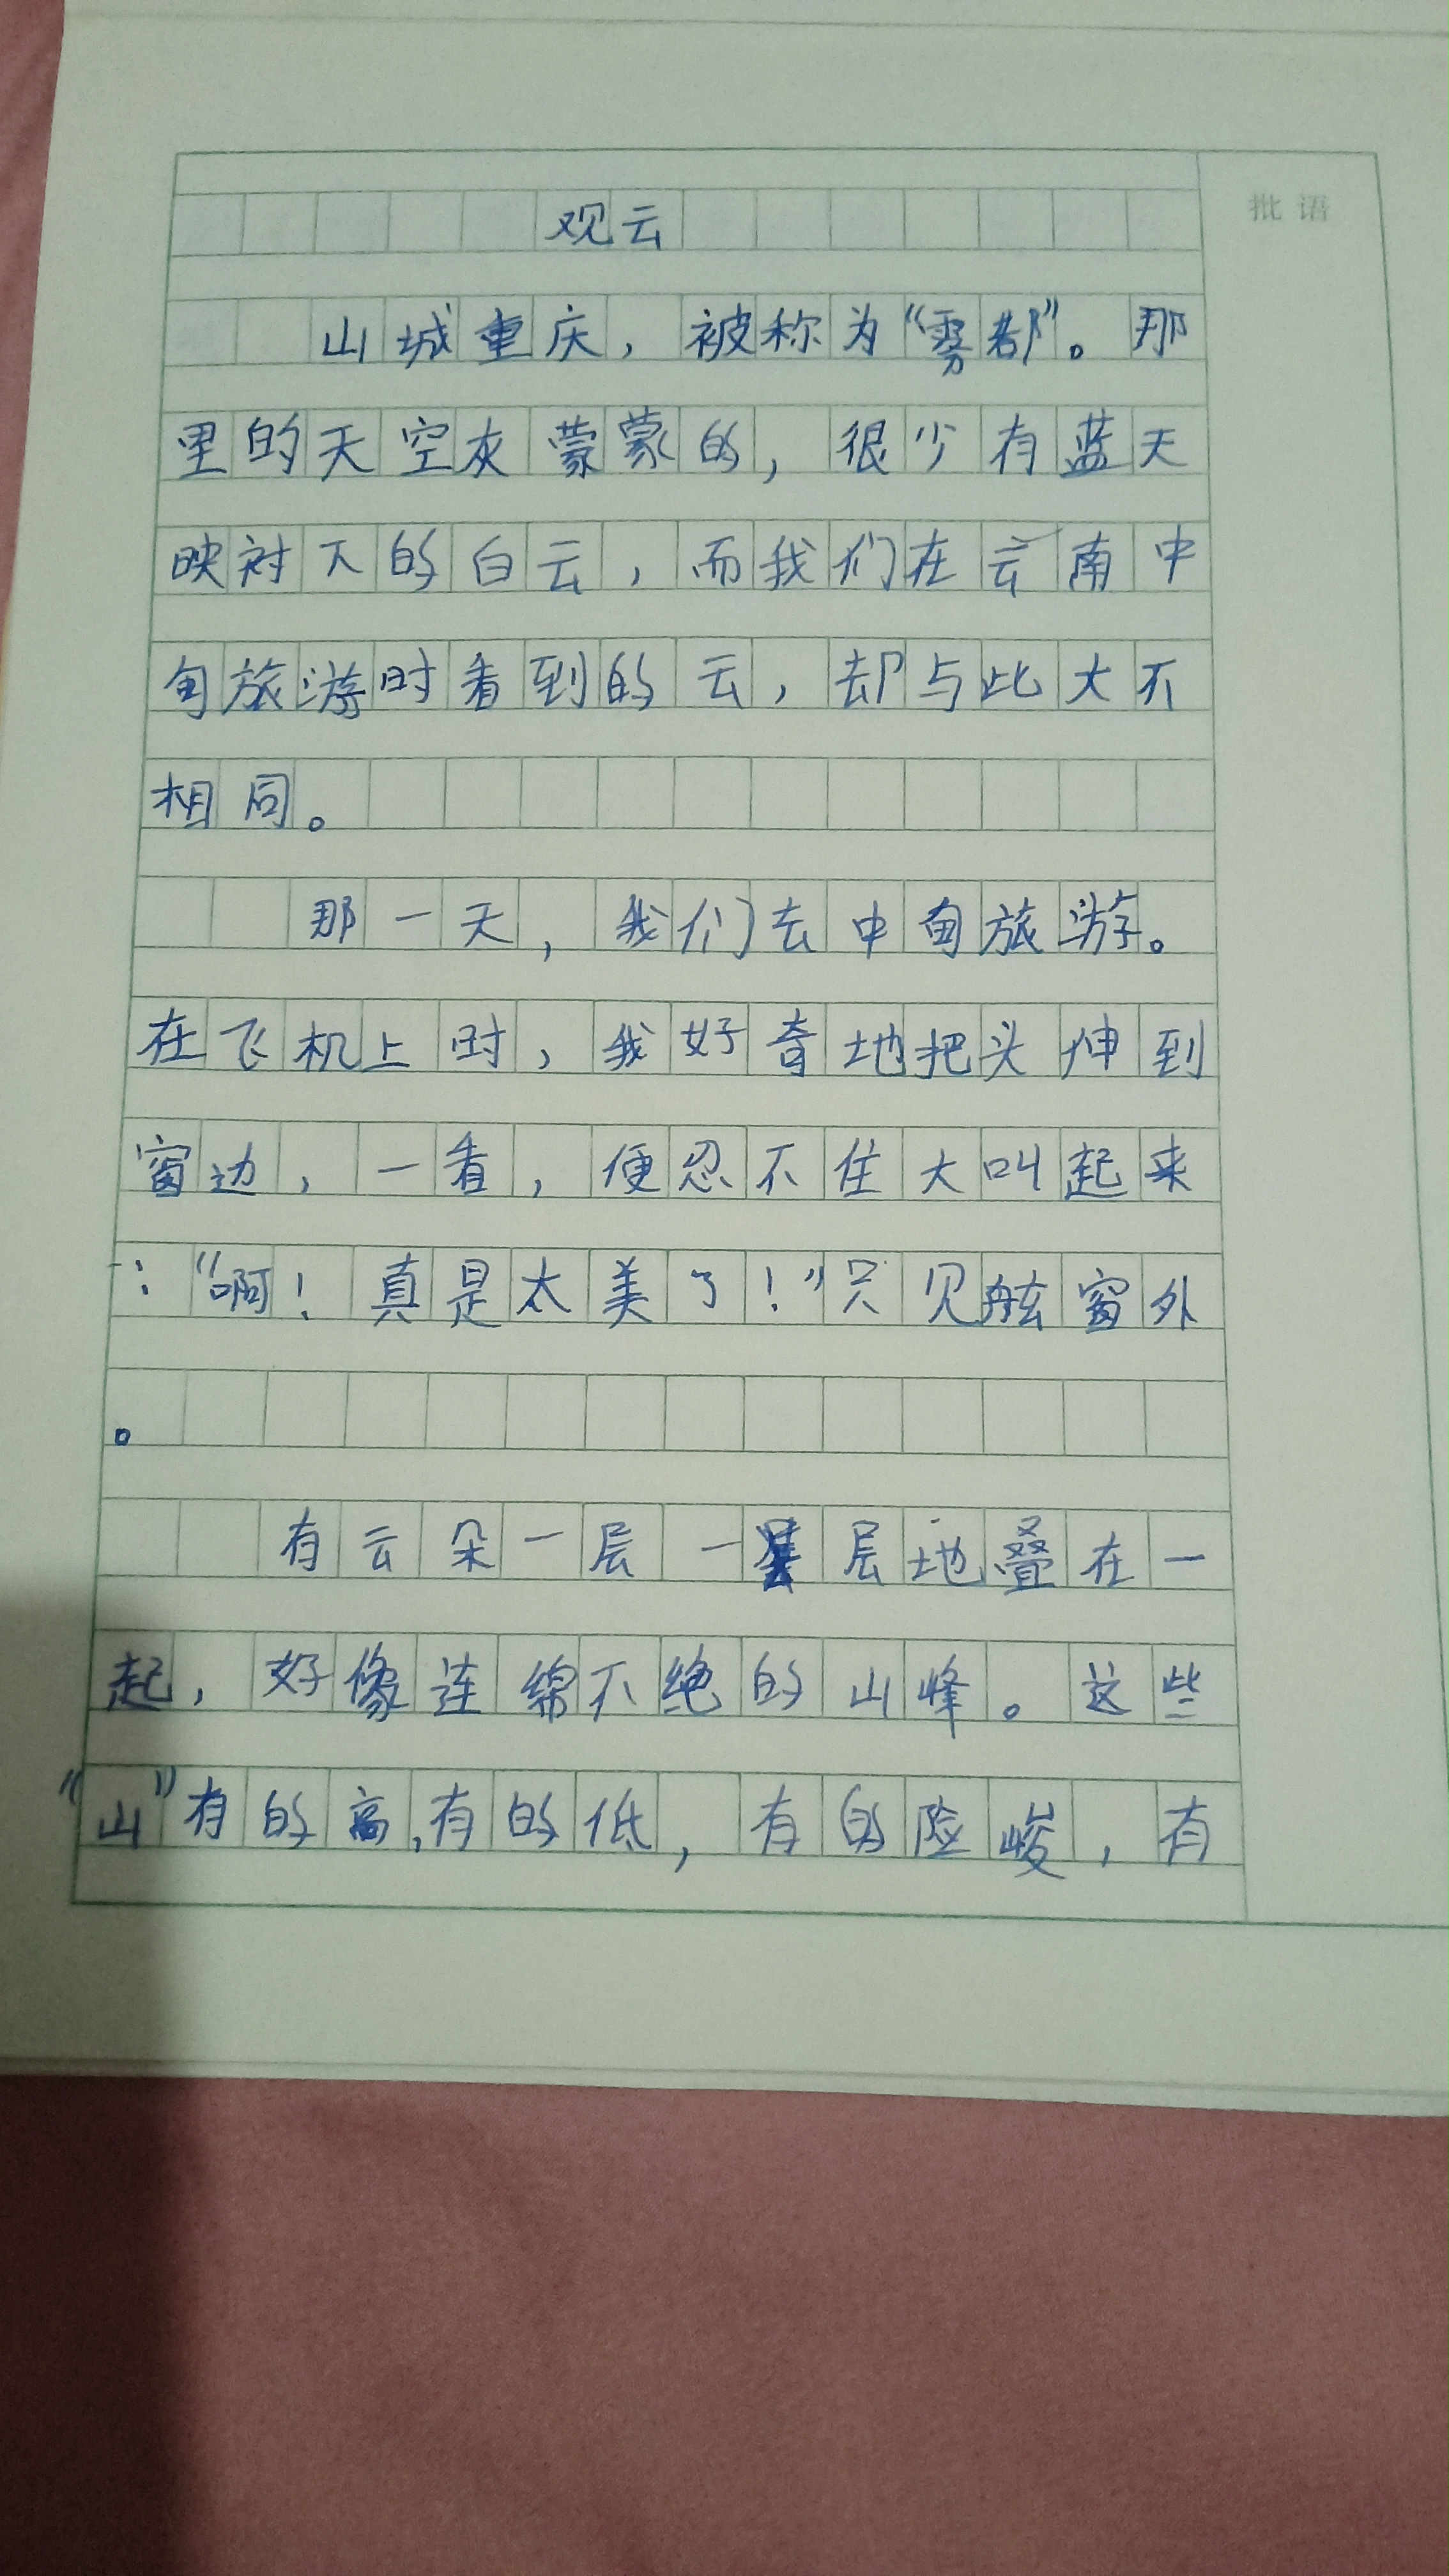 批语
观云
山城重庆，被称为“雾都”。那
里的天空灰蒙蒙的，很少有蓝天
映衬下的白云，而我们在云南中
甸旅游时看到的云，却与此大不
相同。
那一天，我们去中甸旅游。
在飞机上时，我好奇地把头伸到
窗边，一看，便忍不住大叫起来
：“啊！真是太美了！”只见舷窗外
。
有云朵一层一层地叠在一
起，好像连绵不绝的山峰。这些
“山”有的高，有的低，有的险峻，有